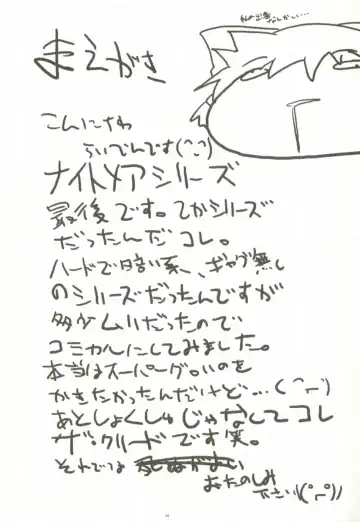 まえがき
私の出番なしかい…
こんにちわ
らいでんです(^_^)
ナイトメアシリーズ
最後です。てかシリーズ
だったんだコレ。
ハードで暗い系、ギャグ無し
のシリーズだったんですが
多少ムリだったので
コミカルにしてみました。
本当はスーパーグロいのを
かきたかったんだけど…(^_^)
あとしょくしゅじゃなくてコレ
ザ・クリードです笑。
それでは
おたのしみ
下さい((^_^))